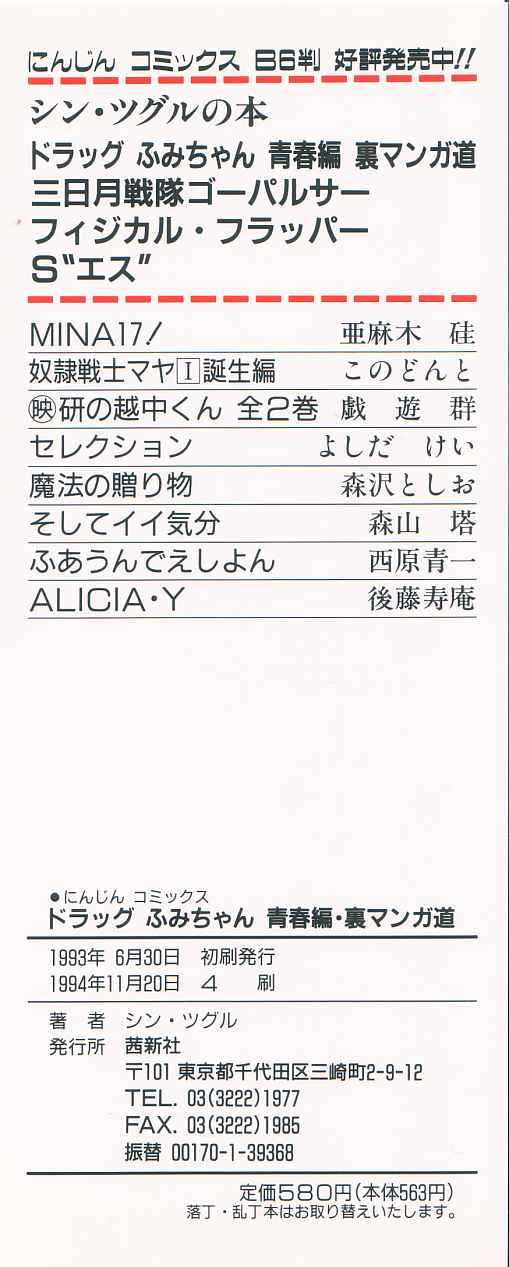 にんじん コミックス B6判 好評発売中!!
シン・ツグルの本
ドラッグ ふみちゃん 青春編 裏マンガ道
三日月戦隊ゴーパルサー
フィジカル・フラッパー
S“エス”
MINA17! 亜麻木 硅
奴隷戦士マヤⅠ誕生編 このどんと
㊞研の越中くん 全2巻 戯遊群
セレクション よしだ けい
魔法の贈り物 森沢としお
そしてイイ気分 森山 塔
ふあうんでえしよん 西原青一
ALICIA・Y 後藤寿庵
●にんじん コミックス
ドラッグ ふみちゃん 青春編・裏マンガ道
1993年 6月30日 初刷発行
1994年11月20日 4 刷
著 者 シン・ツグル
発行所 茜新社
〒101 東京都千代田区三崎町2-9-12
TEL. 03(3222)1977
FAX. 03(3222)1985
振替 00170-1-39368
定価580円(本体563円)
落丁・乱丁本はお取り替えいたします。